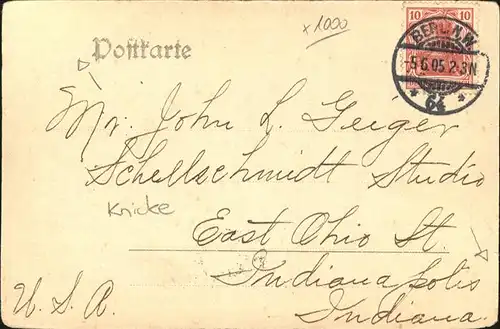 x1000
10 10
BERLIN N.W.
-5.6.05.2-3N
* 64 *
Postkarte
Mr. John L. Geiger
Schellschmidt Studio
Knicke
East Ohio St.
Indianapolis
U.S.A.
Indiana.